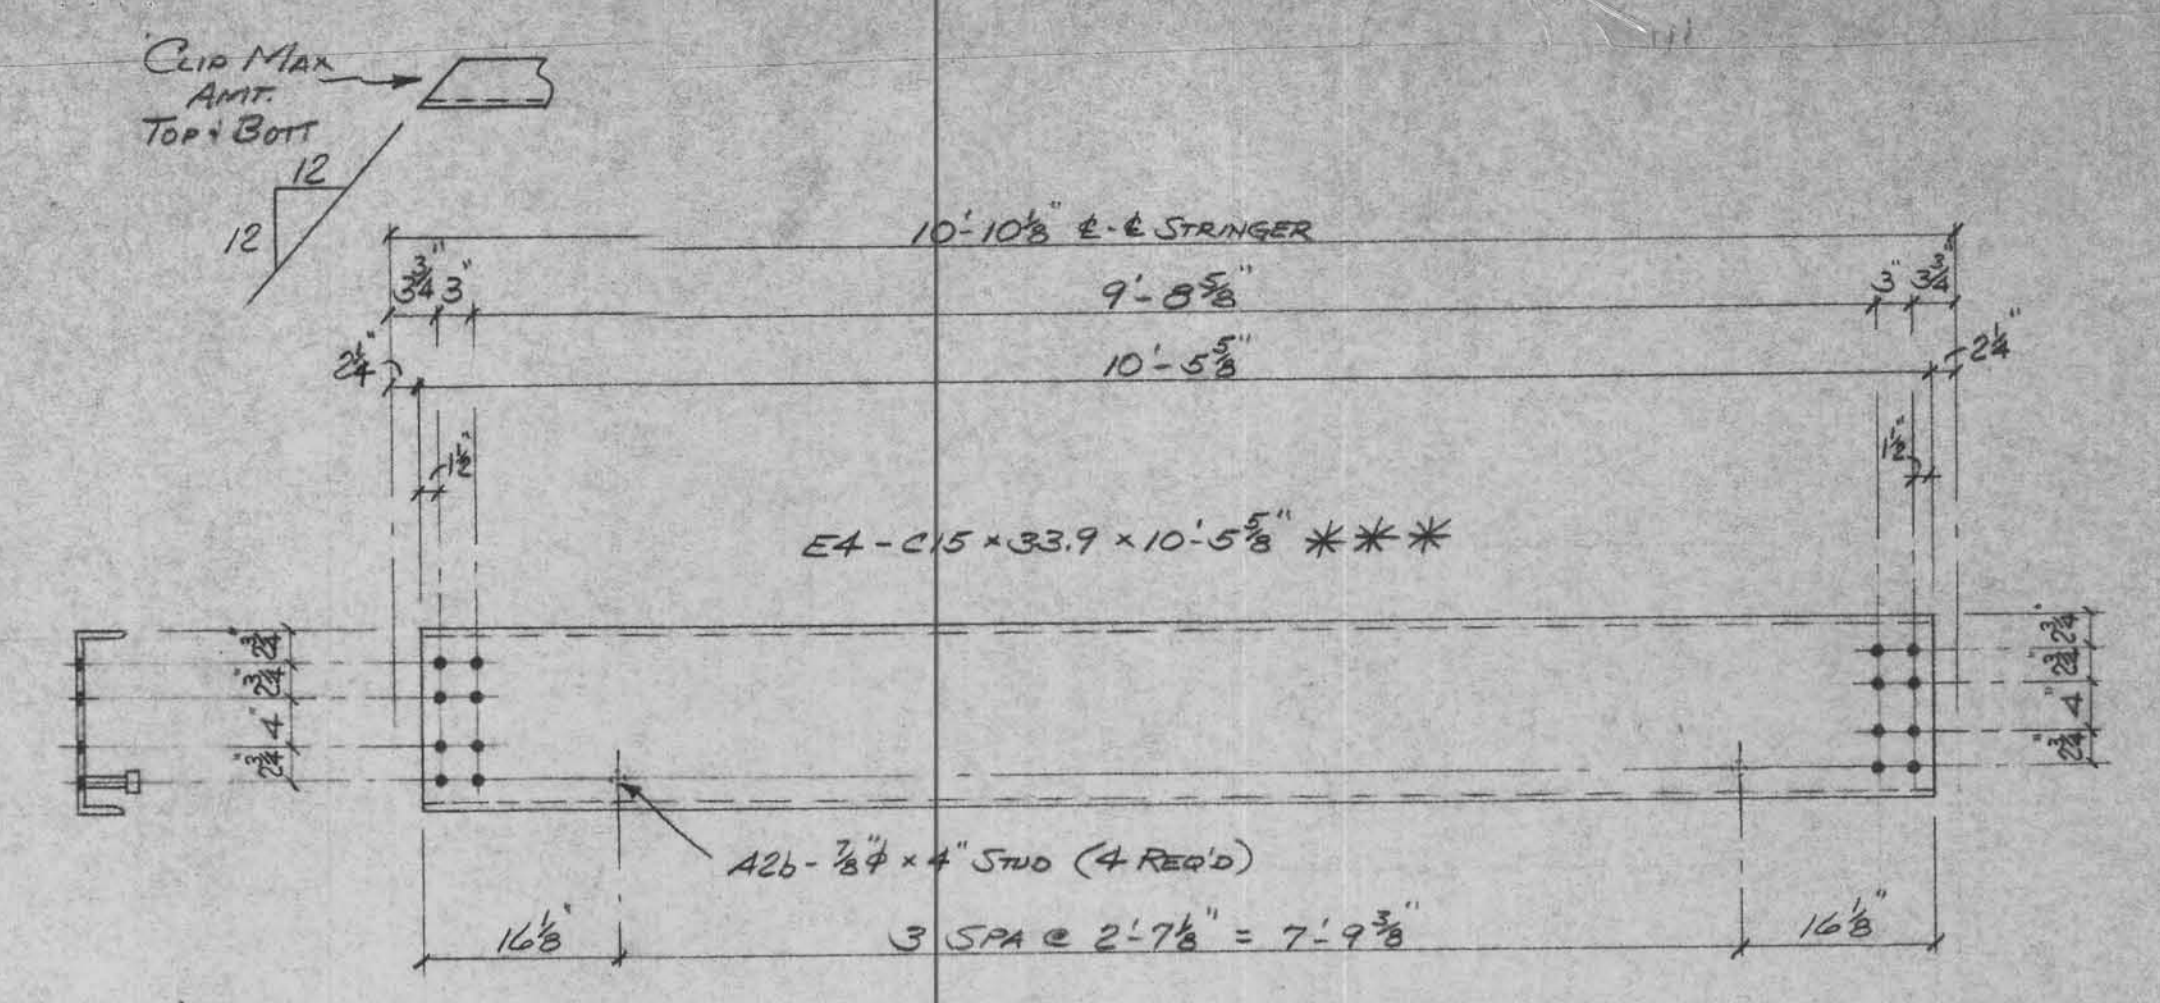 CLIP MAX
AMT.
TOP & BOTT
12
12
10'-10⅛" ℄-℄ STRINGER
3¾" 3"
9'-8⅝"
3" 3¾"
2¼"
10'-5⅝"
2¼"
1½"
1½"
E4-C15×33.9×10'-5⅝" ***
2¾"
2¾"
4"
2¾"
2¾"
2¾"
4"
2¾"
A2b-⅞"⌀×4" STUD (4 REQ'D)
16⅛"
3 SPA @ 2'-7⅛" = 7'-9⅜"
16⅛"